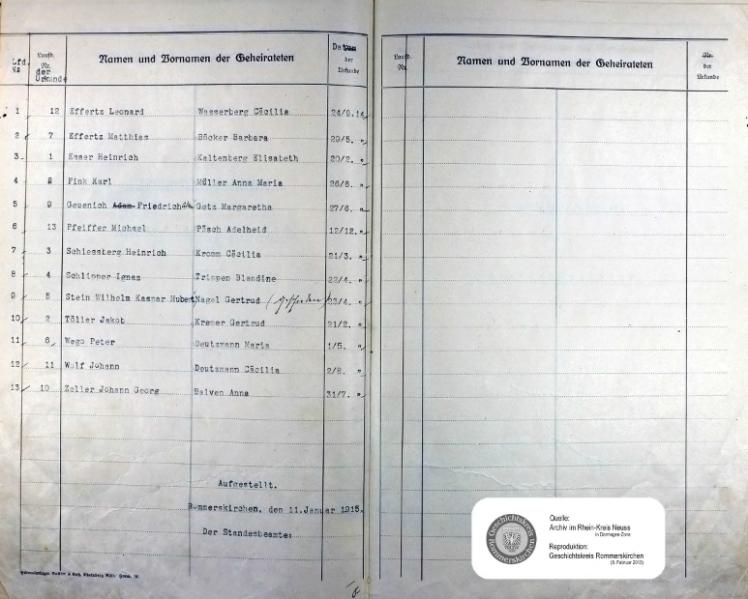 Lfd. № Laufd. Nr. der Urkunde Namen und Vornamen der Geheirateten Datum der Urkunde
1 12 Effertz Leonard Wasserberg Cäcilia 24/9.14
2 7 Effertz Matthias Böcker Barbara 20/5. "
3 1 Esser Heinrich Kaltenberg Elisabeth 20/2. "
4 8 Fink Karl Müller Anna Maria 26/5. "
5 9 Geuenich Adam Friedrich Gotz Margaretha 27/6. "
6 13 Pfeiffer Michael Päsch Adelheid 12/12. "
7 3 Schlossberg Heinrich Kromm Cäcilia 21/3. "
8 4 Schlipper Ignas Trippen Blandine 22/4. "
9 5 Stein Wilhelm Kaspar Hubert Nagel Gertrud 22/4. "
10 2 Töller Jakob Kremer Gertrud 21/2. "
11 6 Wego Peter Deutzmann Maria 1/5. "
12 11 Wolf Johann Deutzmann Cäcilia 2/8. "
13 10 Zeller Johann Georg Beiven Anna 31/7. "
Aufgestellt.
Rommerskirchen, den 11. Januar 1915.
Der Standesbeamte:
Laufd. Nr. Namen und Vornamen der Geheirateten der Urkunde
Geschichtskreis Rommerskirchen
Quelle:
Archiv im Rhein-Kreis Neuss
in Dormagen-Zons
Reproduktion:
Geschichtskreis Rommerskirchen